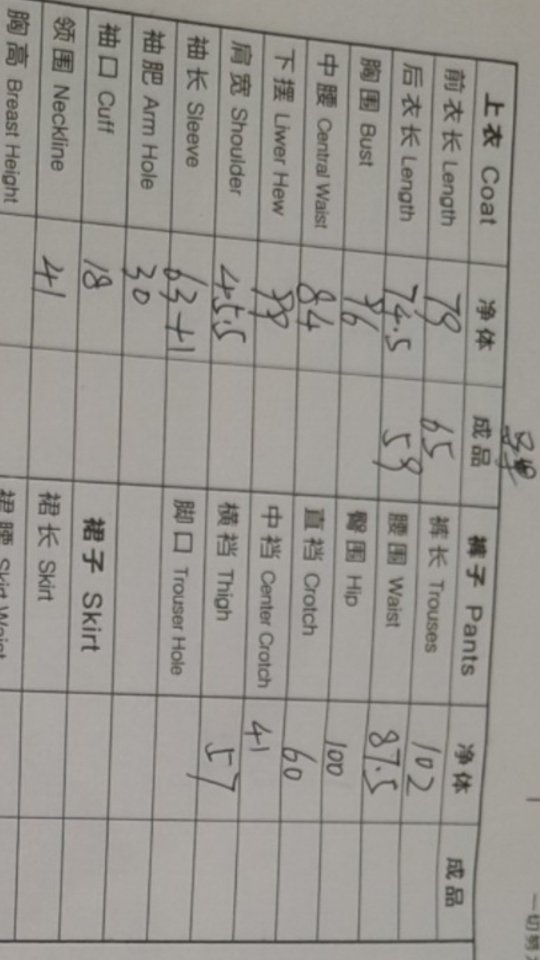 上衣 Coat 净体 成品 裤子 Pants 净体 成品
前衣长 Length 79 65 裤长 Trouses 102
后衣长 Length 74.5 59 腰围 Waist 87.5
胸围 Bust 96 臀围 Hip 100
中腰 Central Waist 84 直裆 Crotch 60
下摆 Liwer Hew 99 中裆 Center Crotch 41
肩宽 Shoulder 45.5 横裆 Thigh 57
袖长 Sleeve 63+1 脚口 Trouser Hole
袖肥 Arm Hole 30
袖口 Cuff 18 裙子 Skirt
领围 Neckline 41 裙长 Skirt
胸高 Breast Height 裙腰 Skirt Waist
一切努力